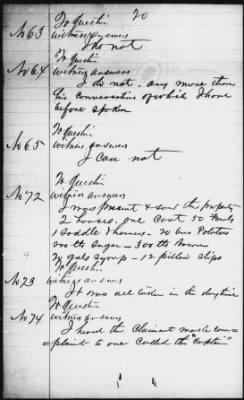 20
To Questin
No 63 witness answers
I do not
To Questin
No 64 witness answers
I do not - any more than
his conversation of which I have
before spoken
To Questin
No 65 witness answers
I can not
To Questin
No 72 witness answers
I was present & saw the property
2 horses, one Cow 50
1 Saddle & harness - 20 bus Potatoes
200 lbs Sugar - 300 lbs
gals syrup - 12 pillow slips
To Questin
No 73 witness answers
It was all taken in the daytime
To Questin
No 74 witness answers
I heard the Claimant make com=
=plaint to one called the "Captain"